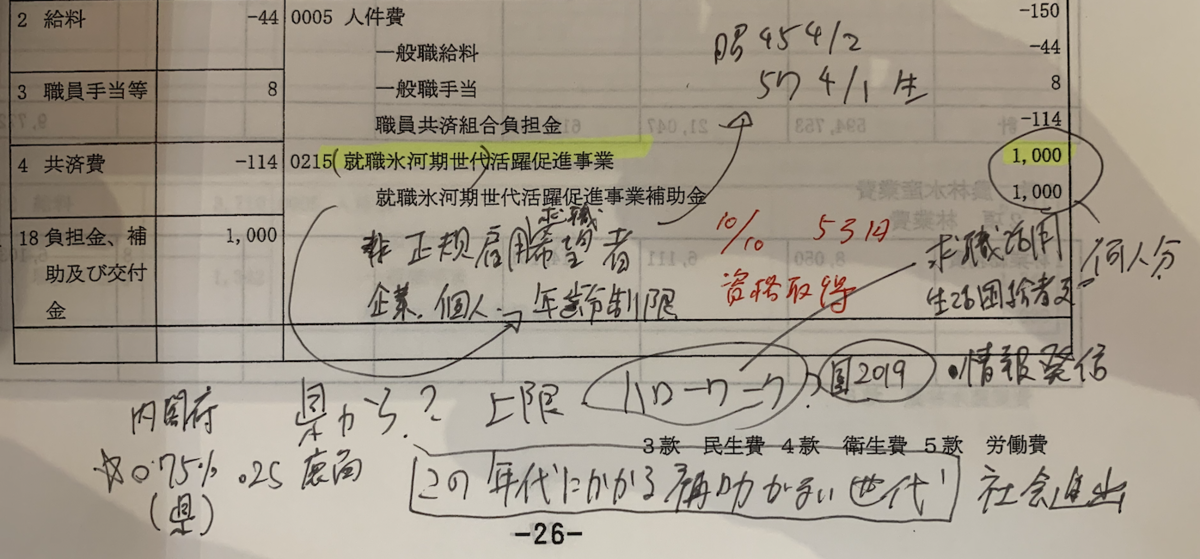 2 給料 -44 0005 人件費 -150
一般職給料 -44
昭45 4/2
57 4/1生
3 職員手当等 8 一般職手当 8
職員共済組合負担金 -114
4 共済費 -114 0215 (就職氷河期世代)活躍促進事業 1,000
就職氷河期世代活躍促進事業補助金 1,000
18 負担金、補助及び交付金 1,000
求職
非正規雇用希望者
企業、個人 → 年齢制限
10/10 53日
資格取得
求職活用
生活困給者支
何人分
・情報発信
内閣府 県から? 上限 ハローワーク 国2019
3款 民生費 4款 衛生費 5款 労働費
☆0.75% .25 鹿角
(県)
この年代にかかる補助がない世代
社会進出
-26-